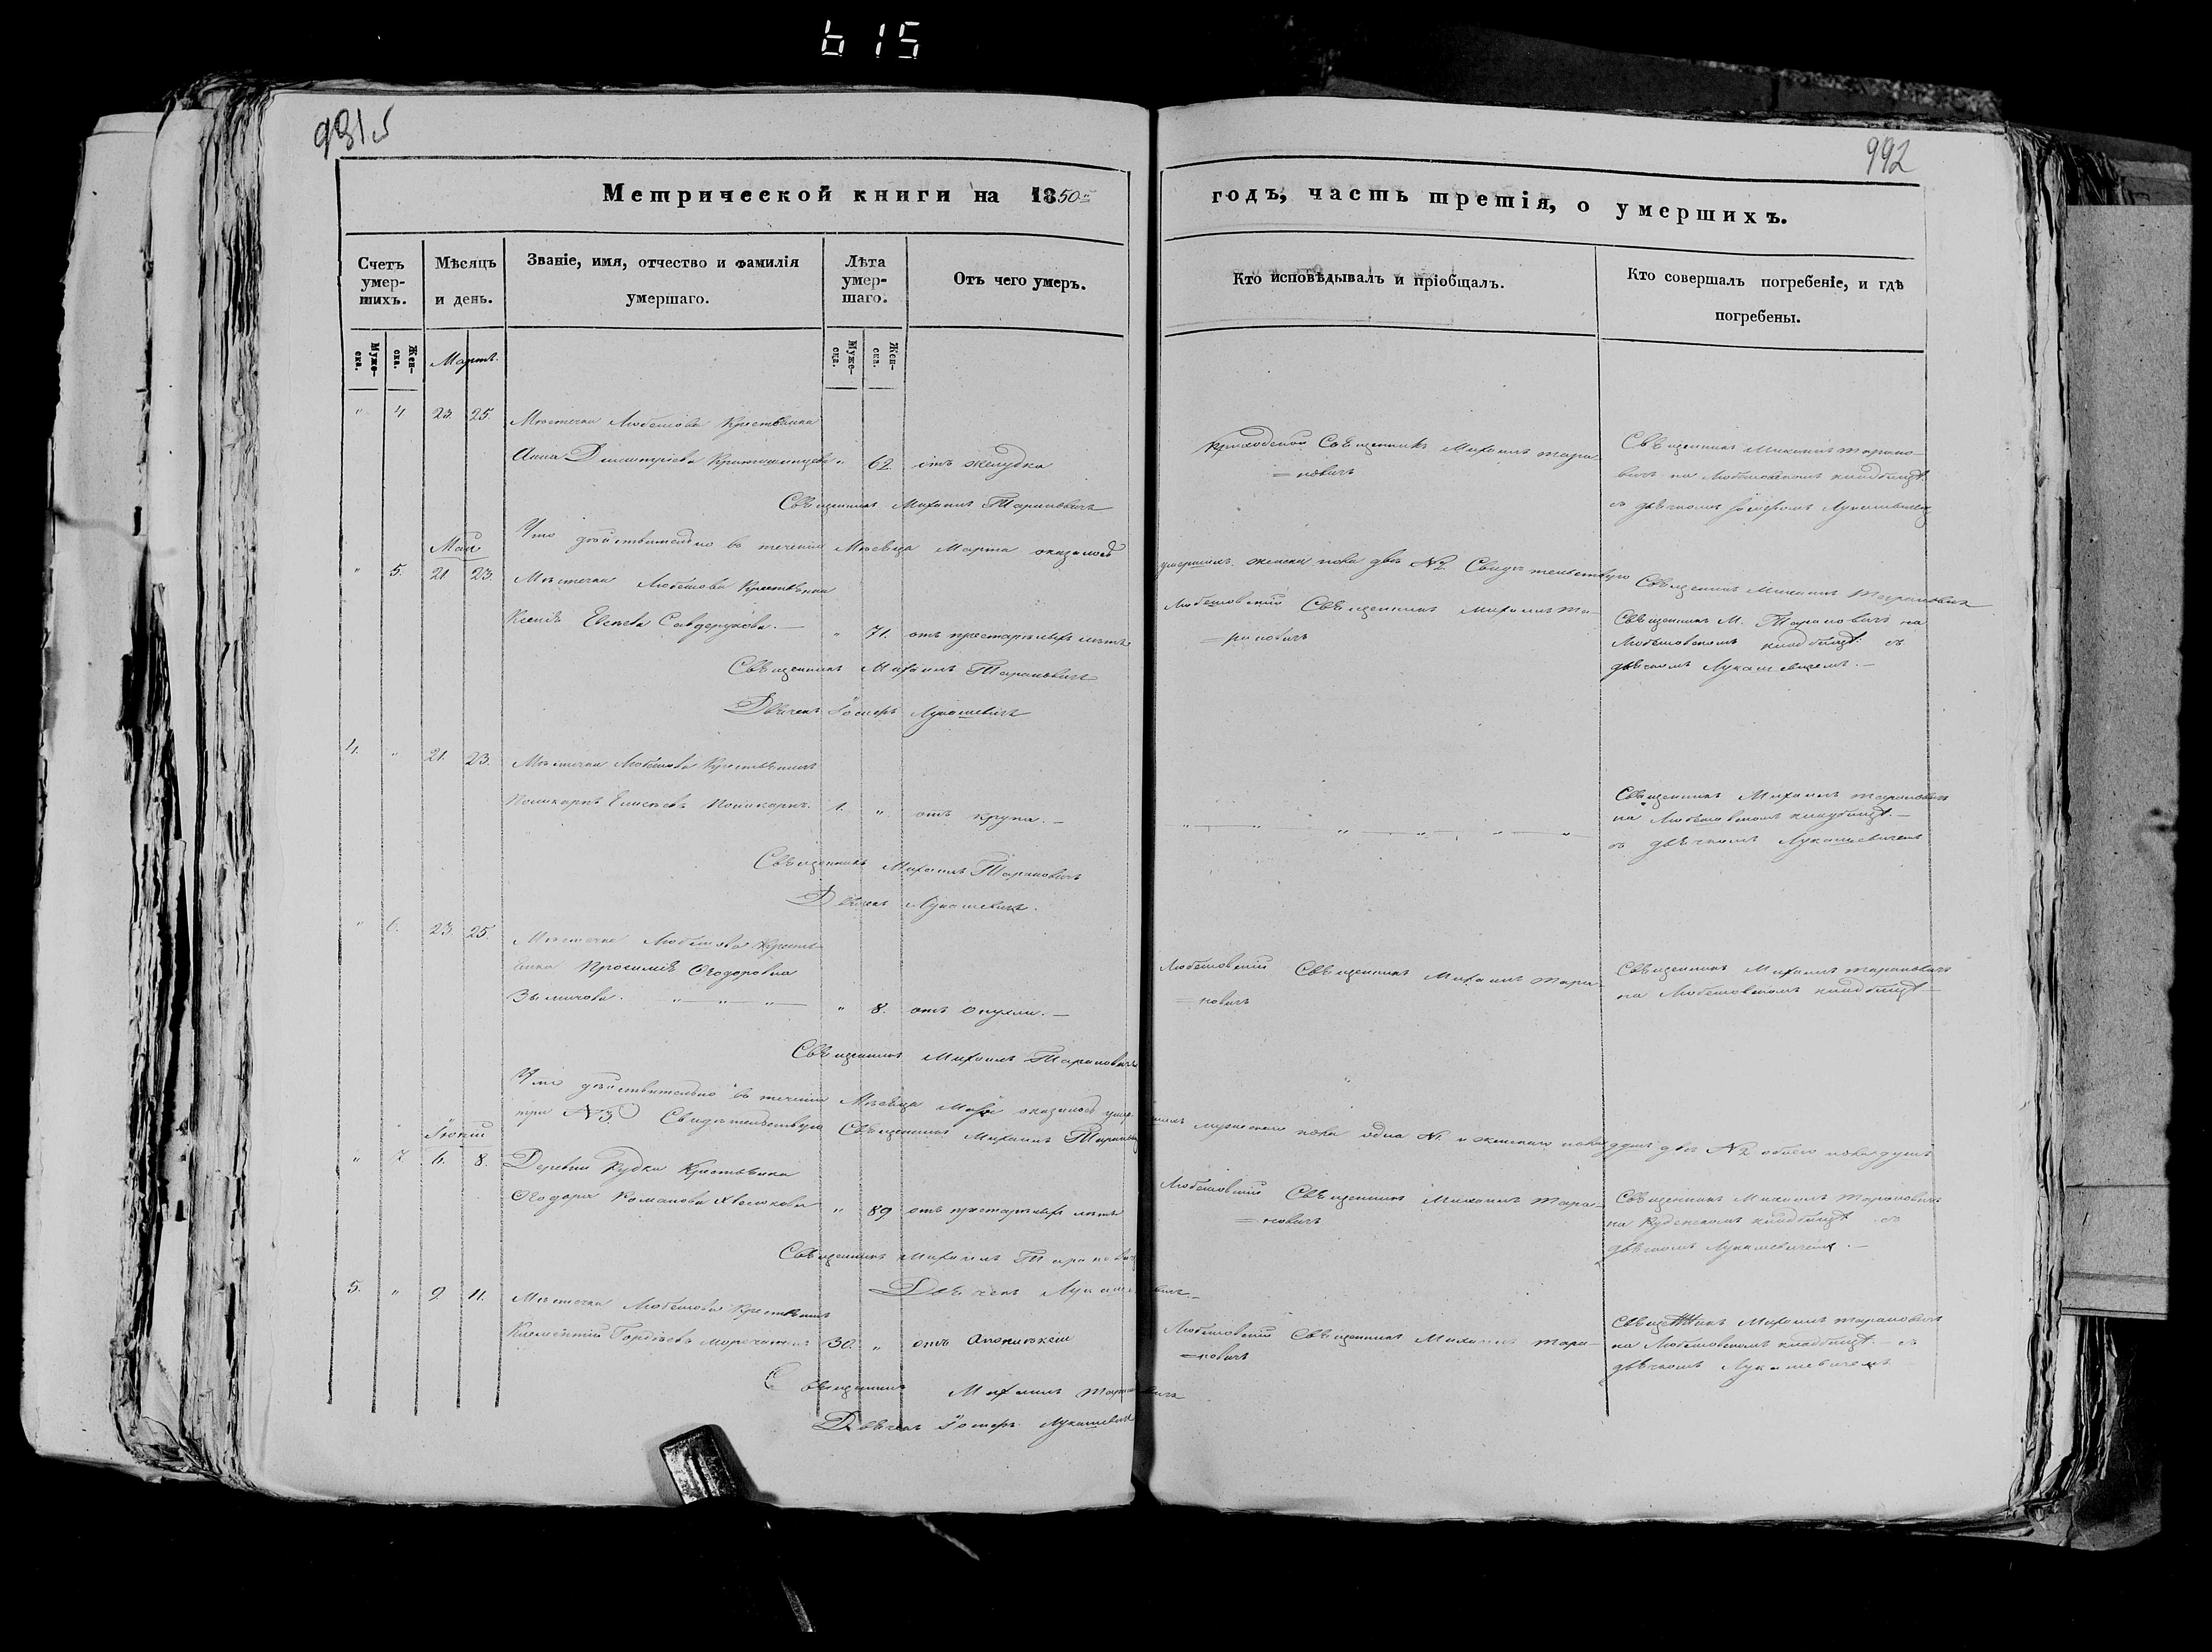 615
992
Метрической книги на 1850
годъ, часть третія, о умершихъ.
Счетъ умер-шихъ.
Мѣсяцъ и день.
Званіе, имя, отчество и фамилія умершаго.
Лѣта умер-шаго.
Отъ чего умеръ.
Кто исповѣдывалъ и пріобщалъ.
Кто совершалъ погребеніе, и гдѣ погребены.
Муже-ска.
Жен-ска.
Муже-ска.
Жен-ска.
Мартъ.
" 4 23. 25. Мѣстечка Любешова Крестьянка
Анна Димитріева " 62. отъ желудка
Приходскій Священникъ Михаилъ Тара-
=новичъ
Священникъ Михаилъ Тарано-
вичъ на Любешовскомъ кладбищѣ
съ дьячкомъ
Священникъ Михаилъ Тарановичъ
Что дѣйствительно въ теченіи Мѣсяца Марта оказалось
умершихъ женска пола двѣ №2. Свидѣтельствую Священникъ Михаилъ Тарановичъ
Май
" 5. 21. 23. Мѣстечка Любешова Крестьянка
Ксенія " 71. отъ престарѣлыхъ лѣтъ
Любешовскій Священникъ Михаилъ Та-
=рановичъ
Священникъ М. Тарановичъ на
Любешовскомъ кладбищѣ съ
дьячкомъ Лукашевичемъ.—
Священникъ Михаилъ Тарановичъ
Дьячекъ Іосифъ Лукашевичъ
4. " 21. 23. Мѣстечка Любешова Крестьянинъ
Поликарпъ 1. " отъ крупа.—
Священникъ Михаилъ Тарановичъ
на Любешовскомъ кладбищѣ.—
съ дьячкомъ Лукашевичемъ
Священникъ Михаилъ Тарановичъ
Дьячекъ Лукашевичъ.
" 6. 23. 25. Мѣстечка Любешова Кресть-
янка Ѳеодоровна
" 8. отъ опухли.—
Любешовскій Священникъ Михаилъ Тара-
=новичъ
Священникъ Михаилъ Тарановичъ
на Любешовскомъ кладбищѣ—
Священникъ Михаилъ Тарановичъ
Что дѣйствительно въ теченіи Мѣсяца Мая оказалось умер-
шихъ мужескаго пола одна №1 и женскаго пола душъ двѣ №2 обоего пола душъ
три №3 Свидѣтельствую Священникъ Михаилъ Тарановичъ
Іюній
" 7 6. 8. Деревни Рудки Крестьянка
" 89 отъ престарѣлыхъ лѣтъ
Любешовскій Священникъ Михаилъ Тара-
=новичъ
Священникъ Михаилъ Тарановичъ
на кладбищѣ съ
дьячкомъ Лукашевичемъ.—
Священникъ Михаилъ Тарановичъ
Дьячекъ Лукашевичъ.
5. " 9. 11. Мѣстечка Любешова Крестьянинъ
Гордіевъ 30. " отъ апоплексіи
Любешовскій Священникъ Михаилъ Тара-
=новичъ
Священникъ Михаилъ Тарановичъ
на Любешовскомъ кладбищѣ.— съ
дьячкомъ Лукашевичемъ
Священникъ Михаилъ Тарановичъ
Дьячекъ Іосифъ Лукашевичъ